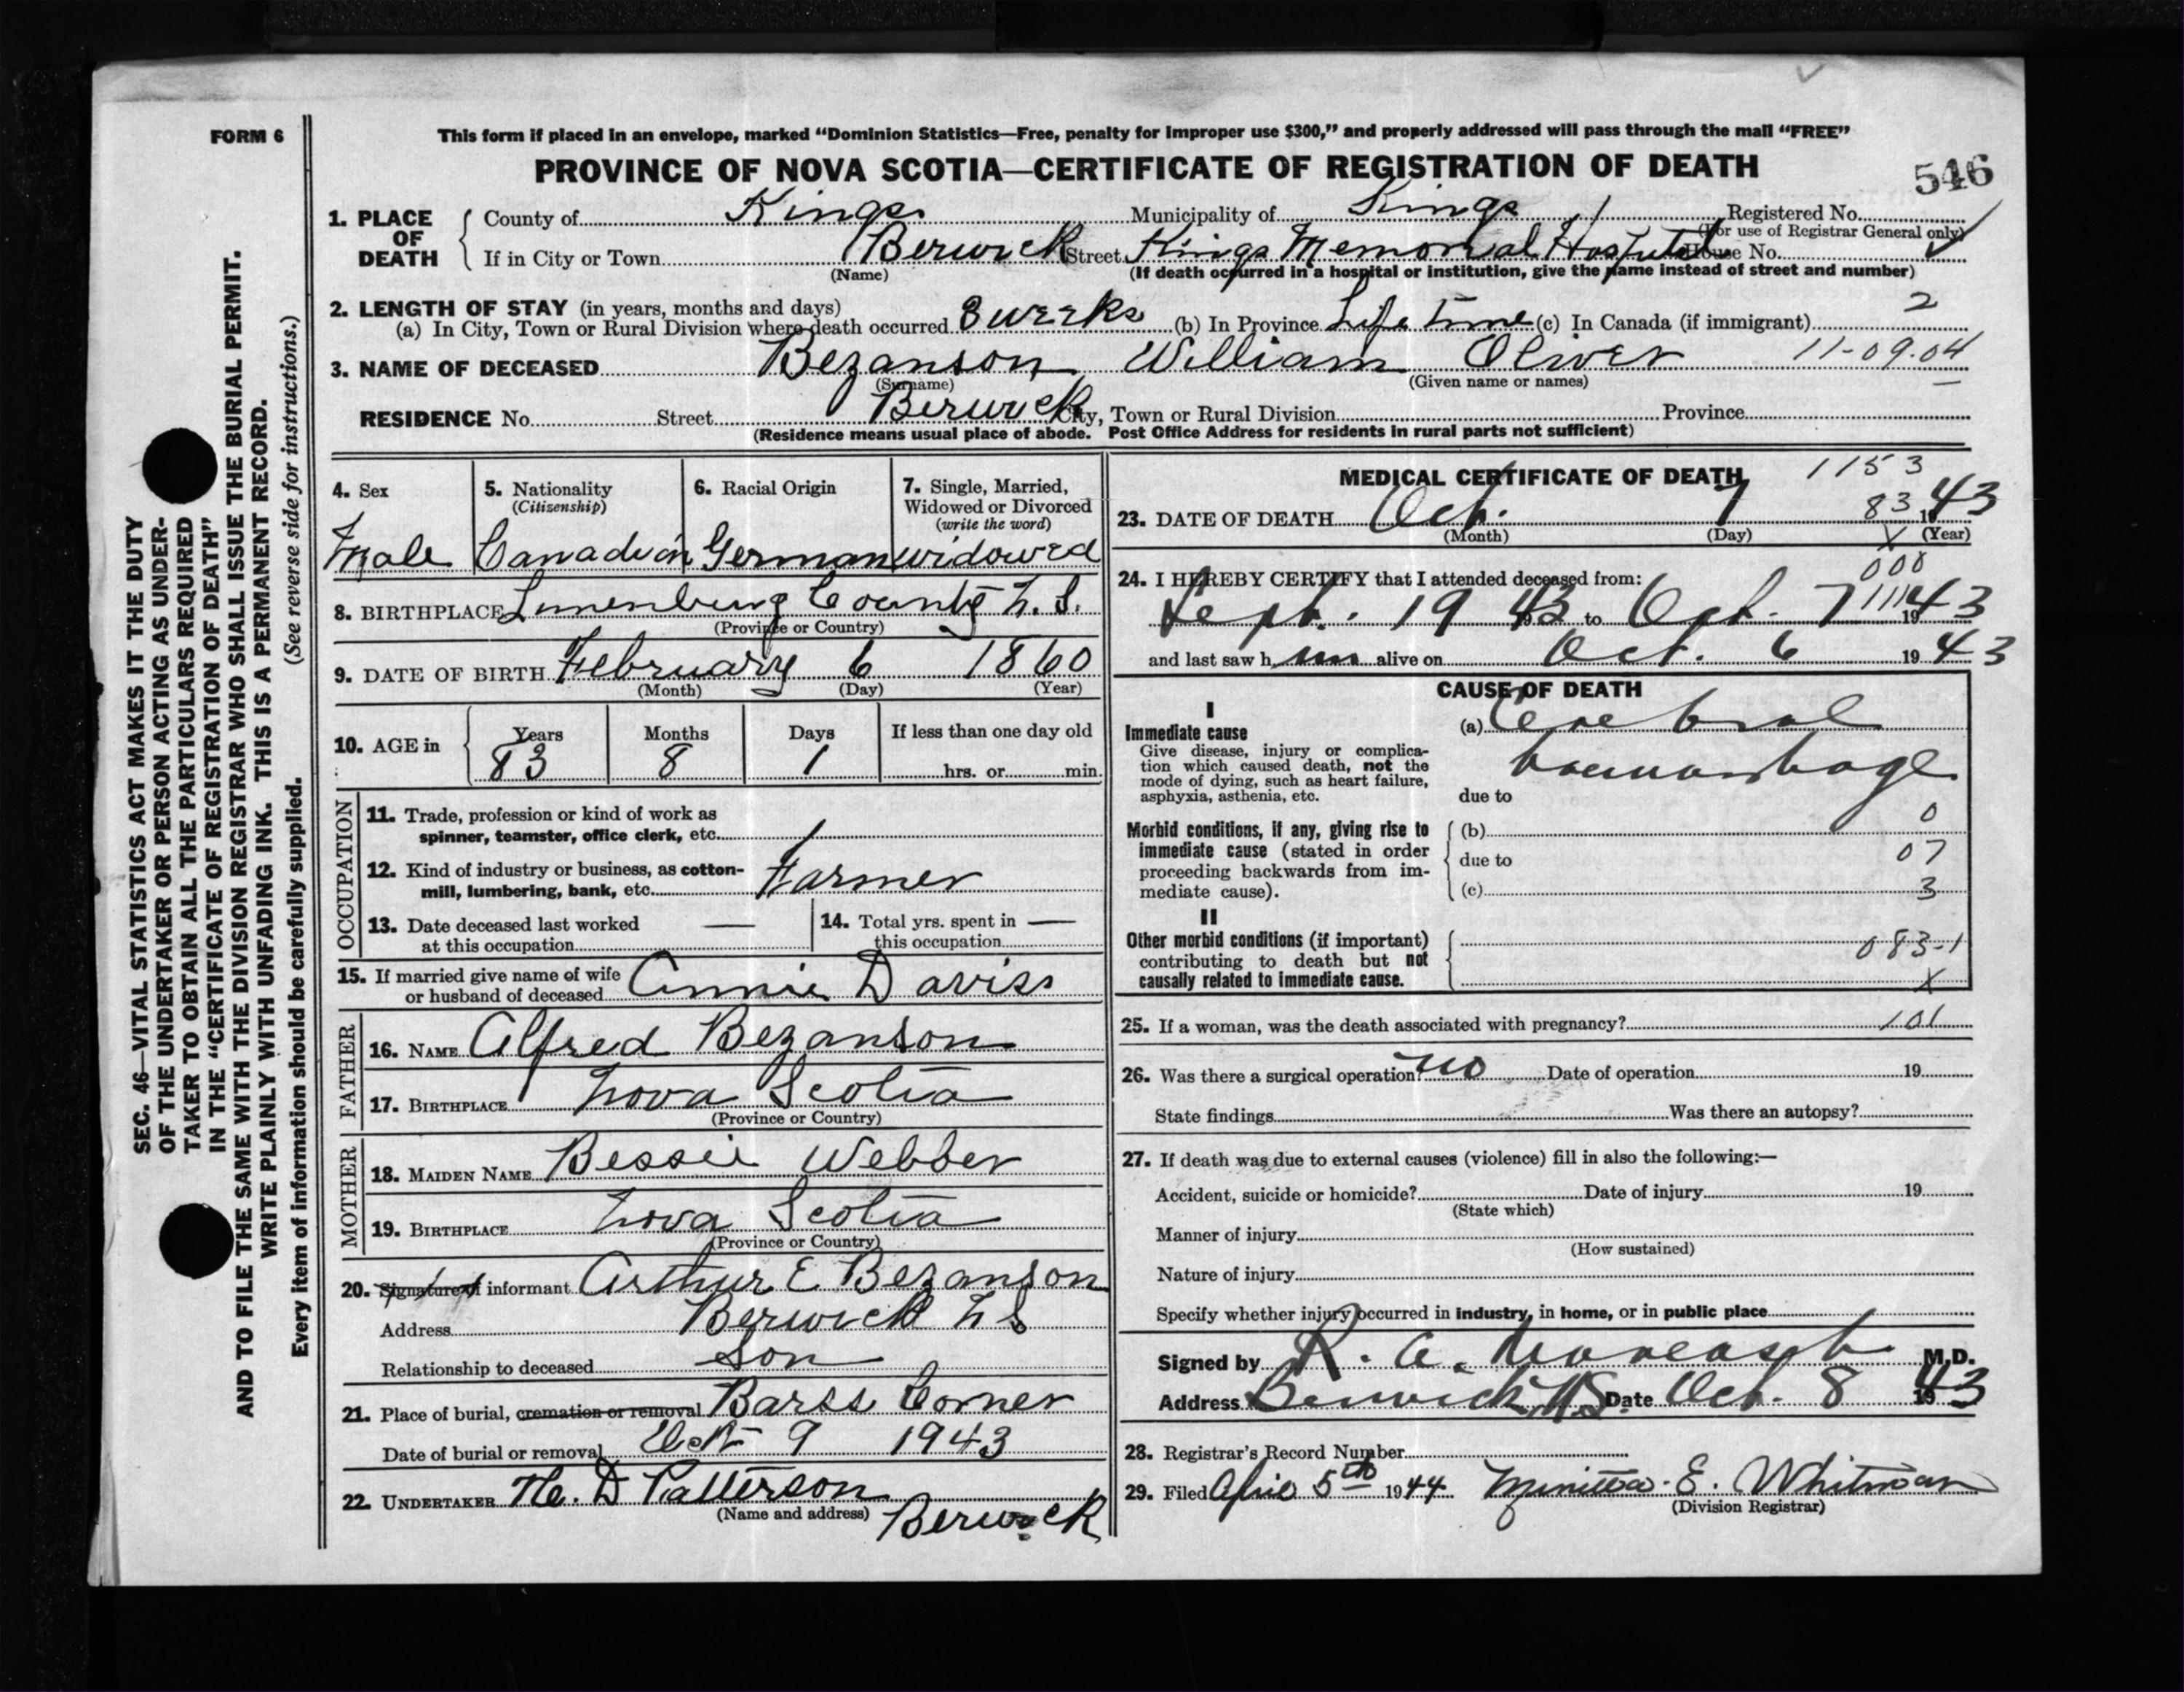 FORM 6
This form if placed in an envelope, marked "Dominion Statistics—Free, penalty for improper use $300," and properly addressed will pass through the mail "FREE"
PROVINCE OF NOVA SCOTIA—CERTIFICATE OF REGISTRATION OF DEATH
546
1. PLACE OF DEATH
County of Kings Municipality of Kings Registered No.
(For use of Registrar General only)
If in City or Town Berwick Street Kings Memorial Hospital House No.
(Name) (If death occurred in a hospital or institution, give the name instead of street and number)
2. LENGTH OF STAY (in years, months and days)
(a) In City, Town or Rural Division where death occurred 3 weeks (b) In Province Life time (c) In Canada (if immigrant) 2
3. NAME OF DECEASED Bezanson William Oliver 11-09.04
(Surname) (Given name or names)
RESIDENCE No. Street Berwick City, Town or Rural Division Province
(Residence means usual place of abode. Post Office Address for residents in rural parts not sufficient)
4. Sex
Male
5. Nationality
(Citizenship)
Canadian
6. Racial Origin
German
7. Single, Married,
Widowed or Divorced
(write the word)
widowed
8. BIRTHPLACE Lunenburg County N.S.
(Province or Country)
9. DATE OF BIRTH February 6 1860
(Month) (Day) (Year)
10. AGE in Years 83 Months 8 Days 1 If less than one day old
hrs. or min.
OCCUPATION
11. Trade, profession or kind of work as
spinner, teamster, office clerk, etc.
12. Kind of industry or business, as cotton-
mill, lumbering, bank, etc. Farmer
13. Date deceased last worked
at this occupation —
14. Total yrs. spent in
this occupation —
15. If married give name of wife
or husband of deceased Annie Daviss
FATHER
16. NAME Alfred Bezanson
17. BIRTHPLACE Nova Scotia
(Province or Country)
MOTHER
18. MAIDEN NAME Bessie Webber
19. BIRTHPLACE Nova Scotia
(Province or Country)
20. Signature of informant Arthur E Bezanson
Address Berwick N S
Relationship to deceased Son
21. Place of burial, cremation or removal Barss Corner
Date of burial or removal Oct 9 1943
22. UNDERTAKER H. D Patterson
(Name and address) Berwick
MEDICAL CERTIFICATE OF DEATH 1153
83
23. DATE OF DEATH Oct. 7 1943
(Month) (Day) (Year)
X
000
24. I HEREBY CERTIFY that I attended deceased from:
Sept. 19 43 to Oct. 7 1943
and last saw him alive on Oct. 6 1943
CAUSE OF DEATH
I
Immediate cause
Give disease, injury or complica-
tion which caused death, not the
mode of dying, such as heart failure,
asphyxia, asthenia, etc.
(a) Cerebral
haemorrhage
due to
Morbid conditions, if any, giving rise to
immediate cause (stated in order
proceeding backwards from im-
mediate cause).
(b) 0
due to 07
(c) 3
II
Other morbid conditions (if important)
contributing to death but not
causally related to immediate cause.
083-1
X
25. If a woman, was the death associated with pregnancy? 101
26. Was there a surgical operation? no Date of operation 19
State findings Was there an autopsy?
27. If death was due to external causes (violence) fill in also the following:—
Accident, suicide or homicide? Date of injury 19
(State which)
Manner of injury
(How sustained)
Nature of injury
Specify whether injury occurred in industry, in home, or in public place
Signed by R. A. M.D.
Address Berwick N.S. Date Oct. 8 1943
28. Registrar's Record Number
29. Filed April 5th 1944 Minitta E. Whitman
(Division Registrar)
SEC. 46—VITAL STATISTICS ACT MAKES IT THE DUTY
OF THE UNDERTAKER OR PERSON ACTING AS UNDER-
TAKER TO OBTAIN ALL THE PARTICULARS REQUIRED
IN THE "CERTIFICATE OF REGISTRATION OF DEATH"
AND TO FILE THE SAME WITH THE DIVISION REGISTRAR WHO SHALL ISSUE THE BURIAL PERMIT.
WRITE PLAINLY WITH UNFADING INK. THIS IS A PERMANENT RECORD.
Every item of information should be carefully supplied. (See reverse side for instructions.)